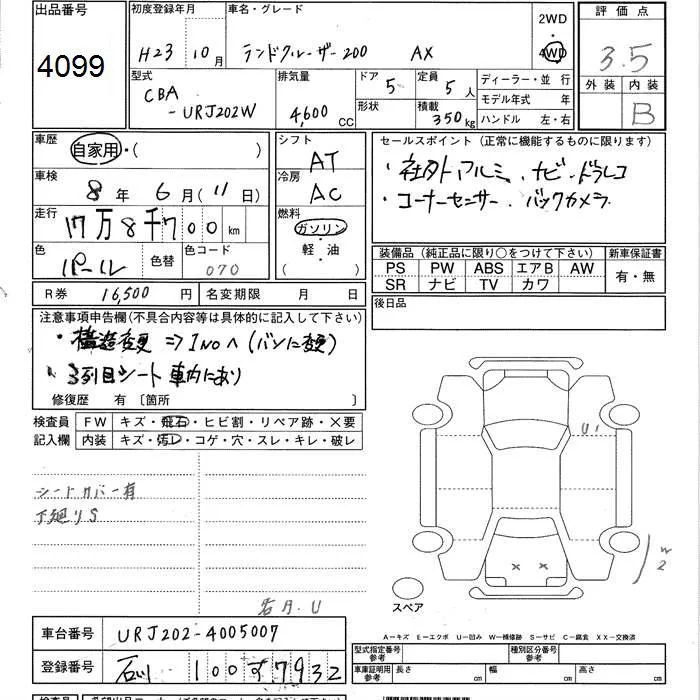 出品番号 初度登録年月 車名・グレード 2WD 評価点
4099 H23年 10月 ランドクルーザー200 AX 4WD 3.5
型式 排気量 ドア 定員 ディーラー・並行 外装 内装
CBA-URJ202W 4,600cc 5 5人 モデル年式 年 B
形状 積載 350kg ハンドル 左・右
車歴 自家用・( ) シフト AT セールスポイント(正常に機能するものに限ります)
車検 8年 6月(11日) 冷房 AC ・社外アルミ、ナビ・ドラレコ
走行 17万8千700km 燃料 ガソリン ・コーナーセンサー、バックカメラ
色 パール 色替 色コード 070 軽・油 ( )
装備品(純正品に限り○をつけて下さい) 新車保証書
PS PW ABS エアB AW 有・無
SR ナビ TV カワ
R券 16,500円 名変期限 月 日 後日品
注意事項申告欄(不具合内容等は具体的に記入して下さい)
・構造変更⇒1Noへ(バンに変更)
・3列目シート車内にあり
修復歴 有〔箇所 〕
検査員 FW キズ・飛石・ヒビ割・リペア跡・×要
記入欄 内装 キズ・汚レ・コゲ・穴・スレ・キレ・破レ
U1
シートカバー有
下廻りS
W2
U
スペア
A―キズ E―エクボ U―凹み W―補修跡 S―サビ C―腐食 XX―交換済
車台番号 URJ202-4005007 型式指定番号 参考 種別区分番号 参考
登録番号 石川 100す7932 車庫証明用 参考 長さ cm 幅 cm 高さ cm